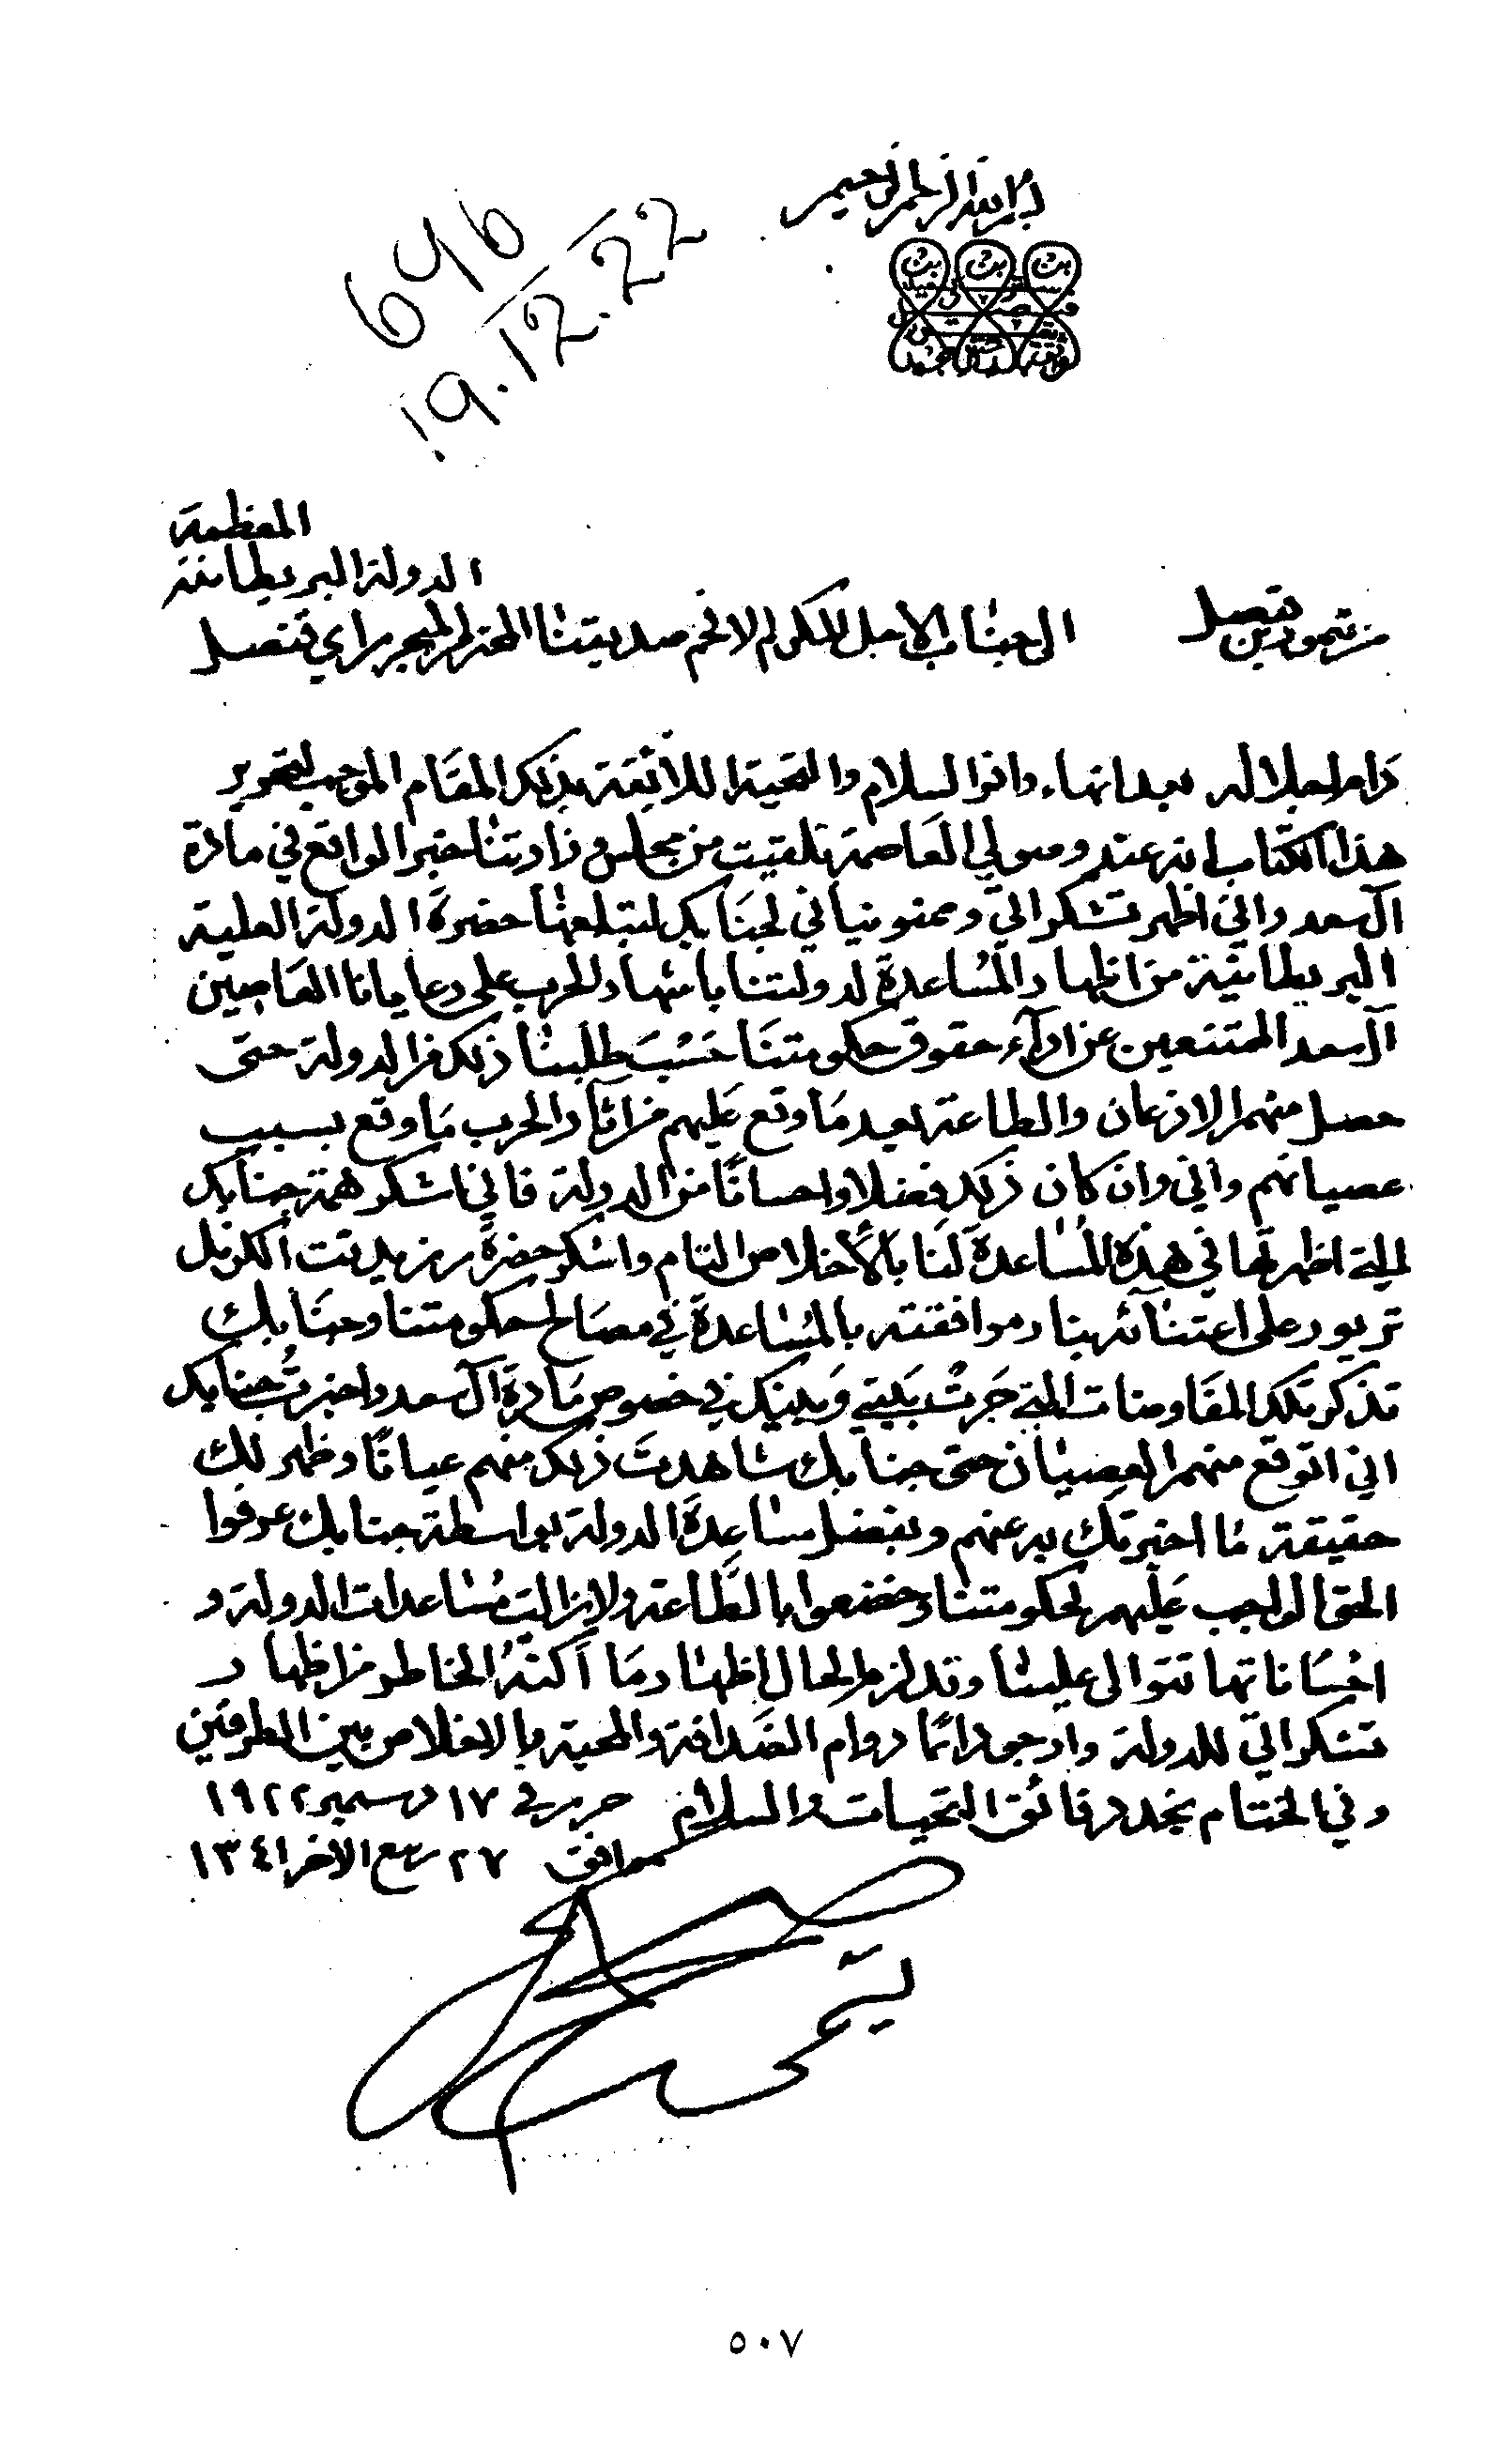 بسم الله الرحمن الرحيم
646
19.12.22
المعظمة
الدولة البريطانية
من تيمور بن فيصل الى جناب الاجل المكرم الافخم صديقنا المعتبر الميجر راي قنصل
دام اجلاله بعد اتهاء وافر السلام والتحية اللائقة بذلك المقام الموجب لتحرير
هذا الكتاب انه عند وصولي العاصمة تلقيت من مجلس وزارتنا خبر الواقع في مادة
آل سعد واني اظهر تشكراتي وممنونياتي لجنابك لتبلغها حضرة الدولة العلية
البريطانية من اظهار المساعدة لدولتنا باشهار الحرب على رعايانا العاصين
آل سعد الممتنعين عن ادآء حقوق حكومتنا حسب طلبنا ذلك من الدولة حتى
حصل منهم الاذعان والطاعة بعد ما وقع عليهم من اثار الحرب ما وقع بسبب
عصيانهم واني وان كان ذلك فضلا واحسانا من الدولة فاني اشكر همة جنابك
التي اظهرتها في هذه المساعدة لنا بالأخلاص التام واشكر حضرة رزيدنت الكرنل
تريور على اعتنائه بنا وموافقته بالمساعدة في مصالح حكومتنا وجنابك
تذكر تلك المفاوضات التي جرت بيني وبينك في خصوص مادة آل سعد واخبرت جنابك
اني اتوقع منهم العصيان حتى جنابك شاهدت ذلك منهم عيانا وظهر لك
حقيقة ما اخبرتك به عنهم وبفضل مساعدة الدولة بواسطة جنابك عرفوا
الحق الواجب عليهم لحكومتنا وخضعوا بالطاعة ولا زالت مساعدات الدولة و
احساناتها تتوالى علينا وقد لزم الحال اظهار ما أكنه الخاطر من اظهار
تشكراتي للدولة وارجو دائما دوام الصداقة والمحبة بالاخلاص بين الطرفين
وفي الختام نجدد فائق التحيات والسلام حرر في ١٧ دسمبر ١٩٢٢
موافق ٢٧ ربيع الاخر ١٣٤١
٥٠٧